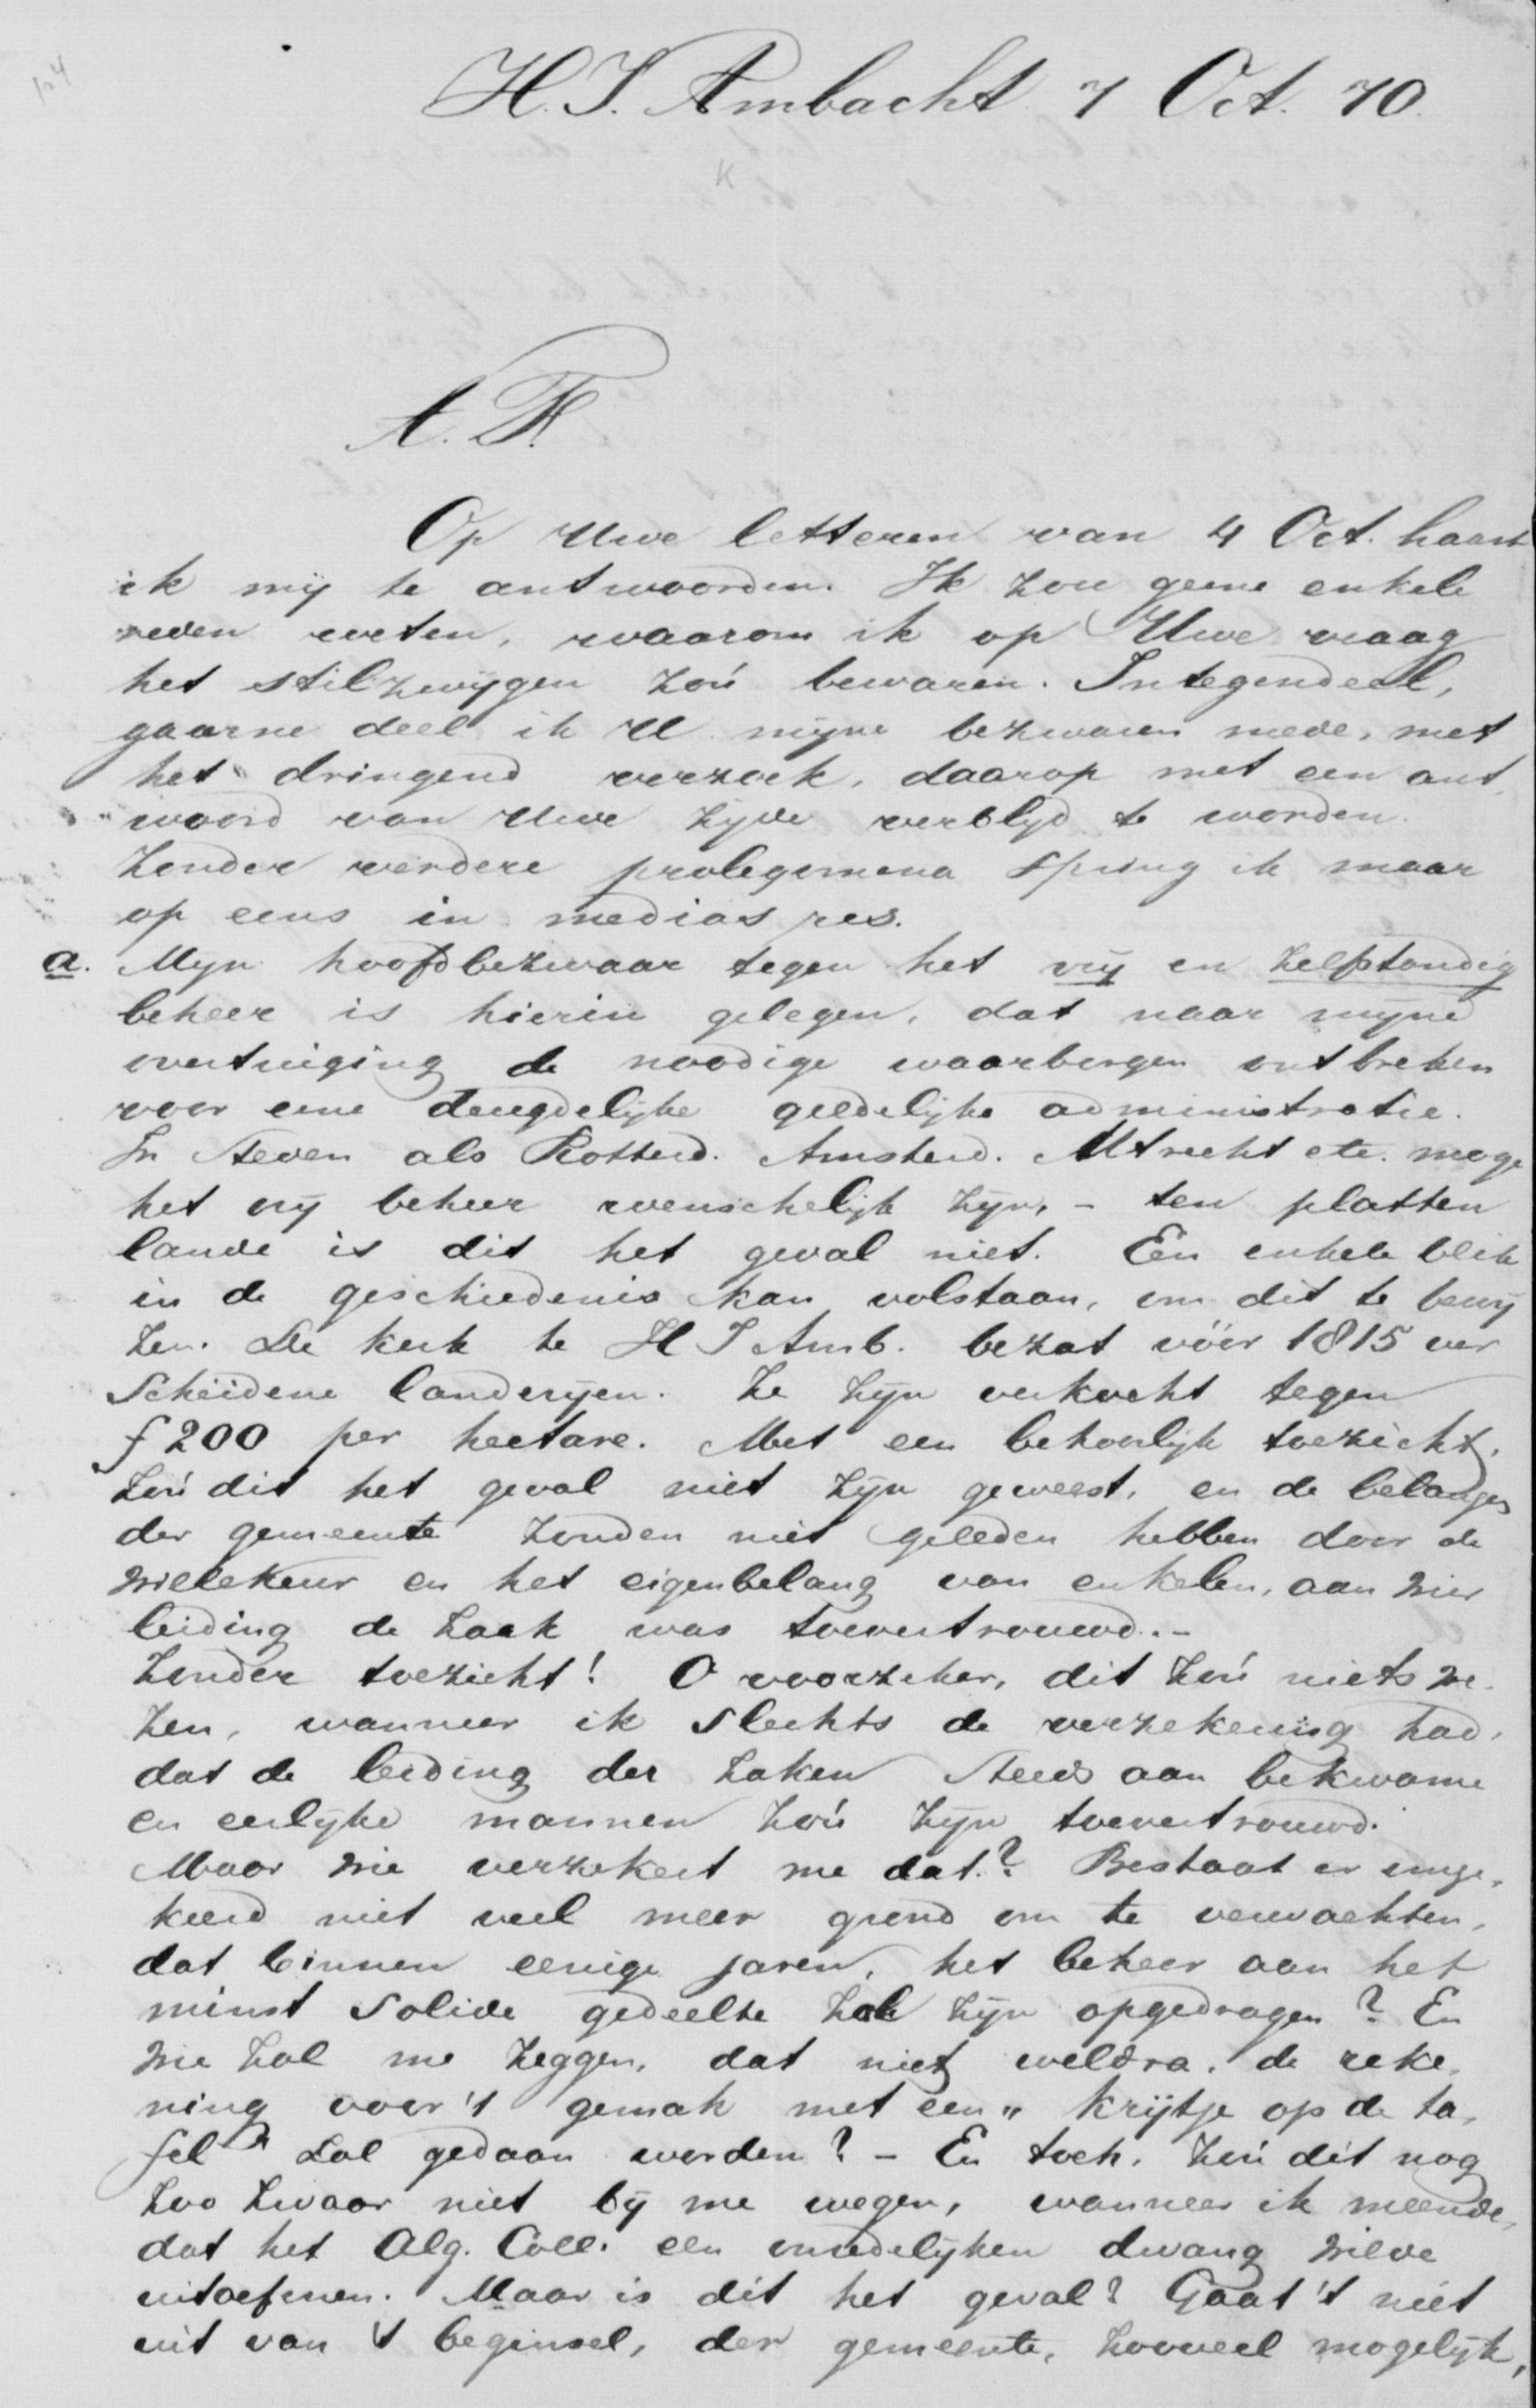 104
H. I. Ambacht 7 Oct. 70.
K
A. F.
Op Uwe letteren van 4 Oct. haast
ik mij te antwoorden. Ik zou geene enkele
reden weten, waarom ik op Uwe vraag
het stilzwijgen zoú bewaren. Integendeel,
gaarne deel ik U mijne bezwaren mede, met
het dringend verzoek, daarop met een ant„
woord van Uwe zijde verblijd te worden.
Zonder verdere prolegomena spring ik maar
op eens in medias res.
a. Mijn hoofdbezwaar tegen het vrij en zelfstandig
beheer is hierin gelegen, dat naar mijne
overtuiging de noodige waarborgen ontbreken
voor eene deugdelijke geldelijke administratie.
In steden als Rotterd. Amsterd. Utrecht etc. moge
het vrij beheer wenschelijk zijn, - ten platten
lande is dit het geval niet. Een enkele blik
in de geschiedenis kan volstaan, om dit te bewij
zen. De kerk te H I Amb. bezat vóór 1815 ver
scheidene landerijen. Ze zijn verkocht tegen
f 200 per hectare. Met een behoorlijk toezicht,
zoú dit het geval niet zijn geweest, en de belangen
der gemeente zouden niet geleden hebben door de
willekeur en het eigenbelang van enkelen, aan wier
leiding de zaak was toevertrouwd. -
Zonder toezicht! O voorzeker, dit zoú niets we„
zen, wanneer ik slechts de verzekering had,
dat de leiding der zaken steeds aan bekwame
en eerlijke mannen zoú zijn toevertrouwd.
Maar wie verzekert me dat? Bestaat er omge„
keerd niet veel meer grond om te verwachten,
dat binnen eenige jaren, het beheer aan het
minst solide gedeelte zal zijn opgedragen? En
wie zal me zeggen, dat niet weldra, de reke„
ning voor 't gemak met een „ krijtje op de ta„
fel" zal gedaan worden? - En toch, zoú dit nog
zoo zwaar niet bij me wegen, wanneer ik meende,
dat het Alg. Coll. een onredelijken dwang wilde
uitoefenen. Maar is dit het geval? Gaat 't niet
uit van 't beginsel, der gemeente, zooveel mogelijk,